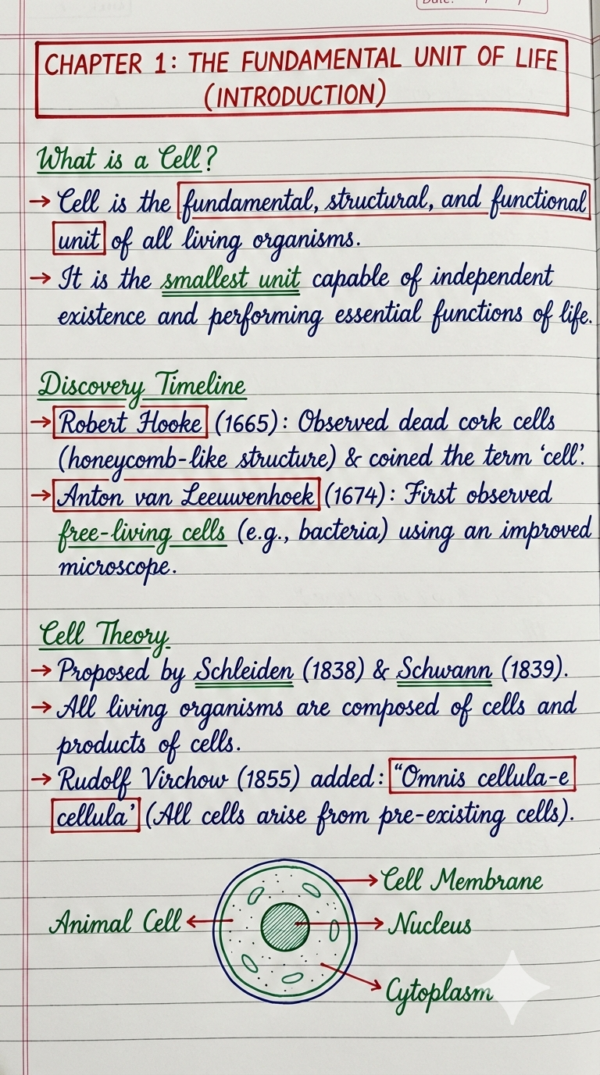 Date:
CHAPTER 1: THE FUNDAMENTAL UNIT OF LIFE
(INTRODUCTION)
What is a Cell?
→ Cell is the fundamental, structural, and functional
unit of all living organisms.
→ It is the smallest unit capable of independent
existence and performing essential functions of life.
Discovery Timeline
→ Robert Hooke (1665): Observed dead cork cells
(honeycomb-like structure) & coined the term 'cell'.
→ Anton van Leeuwenhoek (1674): First observed
free-living cells (e.g., bacteria) using an improved
microscope.
Cell Theory
→ Proposed by Schleiden (1838) & Schwann (1839).
→ All living organisms are composed of cells and
products of cells.
→ Rudolf Virchow (1855) added: "Omnis cellula-e
cellula' (All cells arise from pre-existing cells).
Cell Membrane
Animal Cell
Nucleus
Cytoplasm